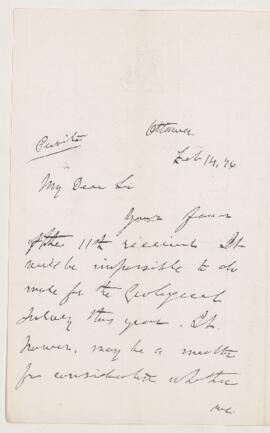 Ottawa
Private
Feb 14, 74
My Dear Sir
Your favor
of the 11th received. It
will be impossible to do
more for the Geological
Survey this year. It
however, may be a matter
for consideration whether
we